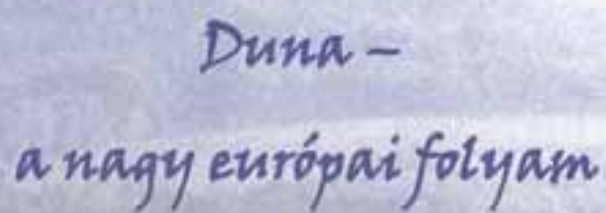 Duna –
a nagy európai folyam